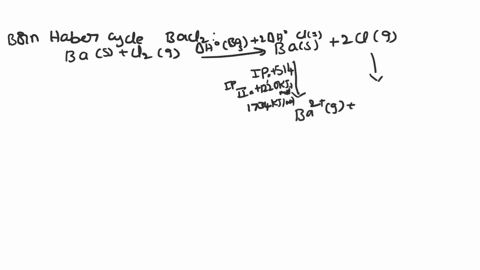 Born Haber cycle BaCl2:
Ba(s) + Cl2(g) ΔH°(Bg) + 2ΔH° Cl(s) Ba(s) + 2Cl(g)
IP. + 514
IP II. + 1220 KJ,
1704 KJ/mol
Ba2+(g) +